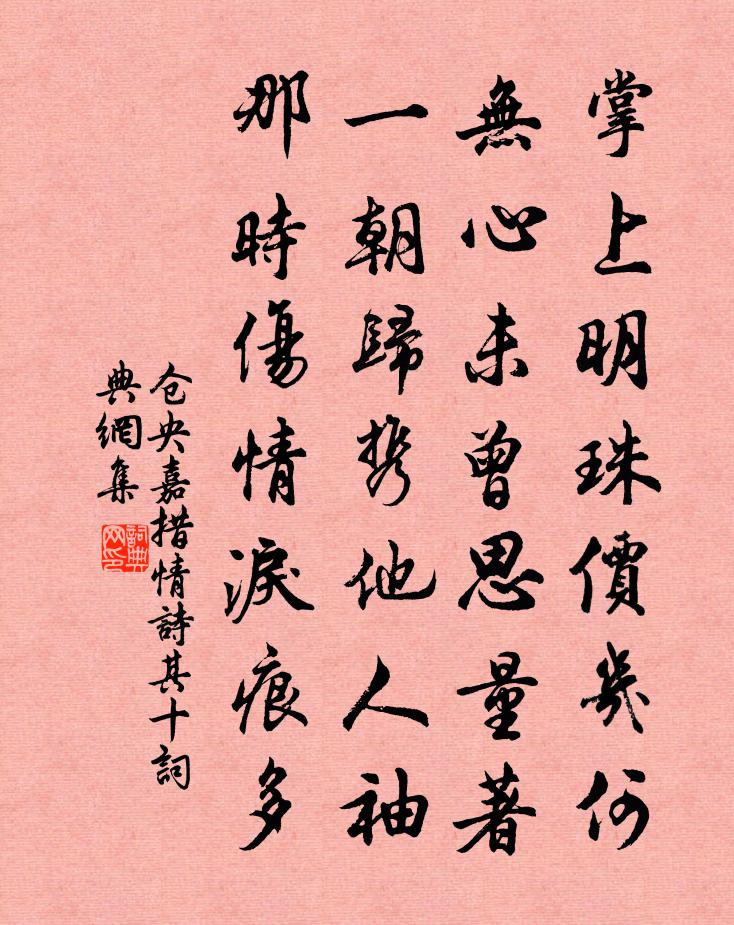 掌上明珠價幾何
無心未曾思量著
一朝歸携他人袖
那時傷情淚痕多
仓央嘉措情詩其十詞
典網集
詞典网印